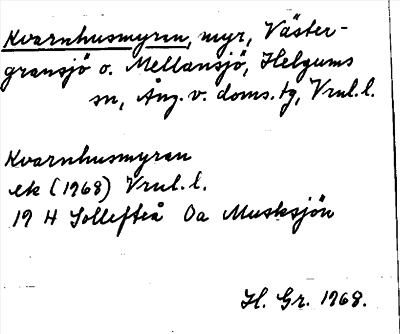 Kvarnhusmyren, myr, Väster-
gransjö o. Mellansjö, Helgums
sn, Ång. v. doms. tg, Vrnl. l.
Kvarnhusmyran
ek (1968) Vrnl. l.
19 H Sollefteå Oa Musksjön
H. Gr. 1968.